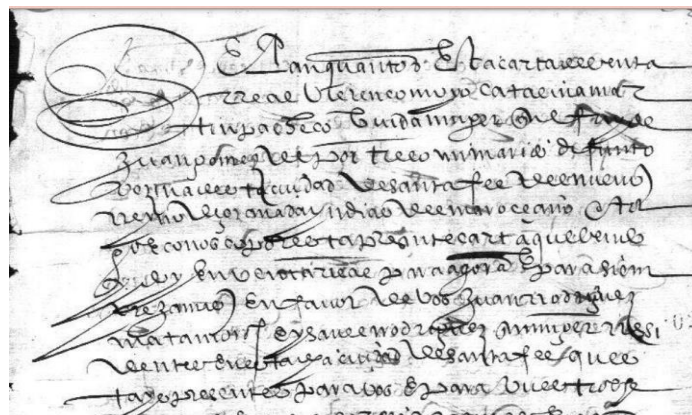 Sepan quantos Esta carta de benta
rreal Vieren como yo catalina mar
tin pacheco biuda muger que fui de
Juan gomez de portillo mi marido difunto
vezina desta ciudad de santa fee del nuevo
rreyno de granada yndias del mar oceano otor
go E conosco por esta presente carta que bendo
E doy En venta rreal para agora E para siem
pre xamas En favor de bos Juan rrodriguez
matamoros E ysavel rodriguez su muger rresi
dentes en esta ciudad de santa fee que
tays presentes para bos E para vuestros